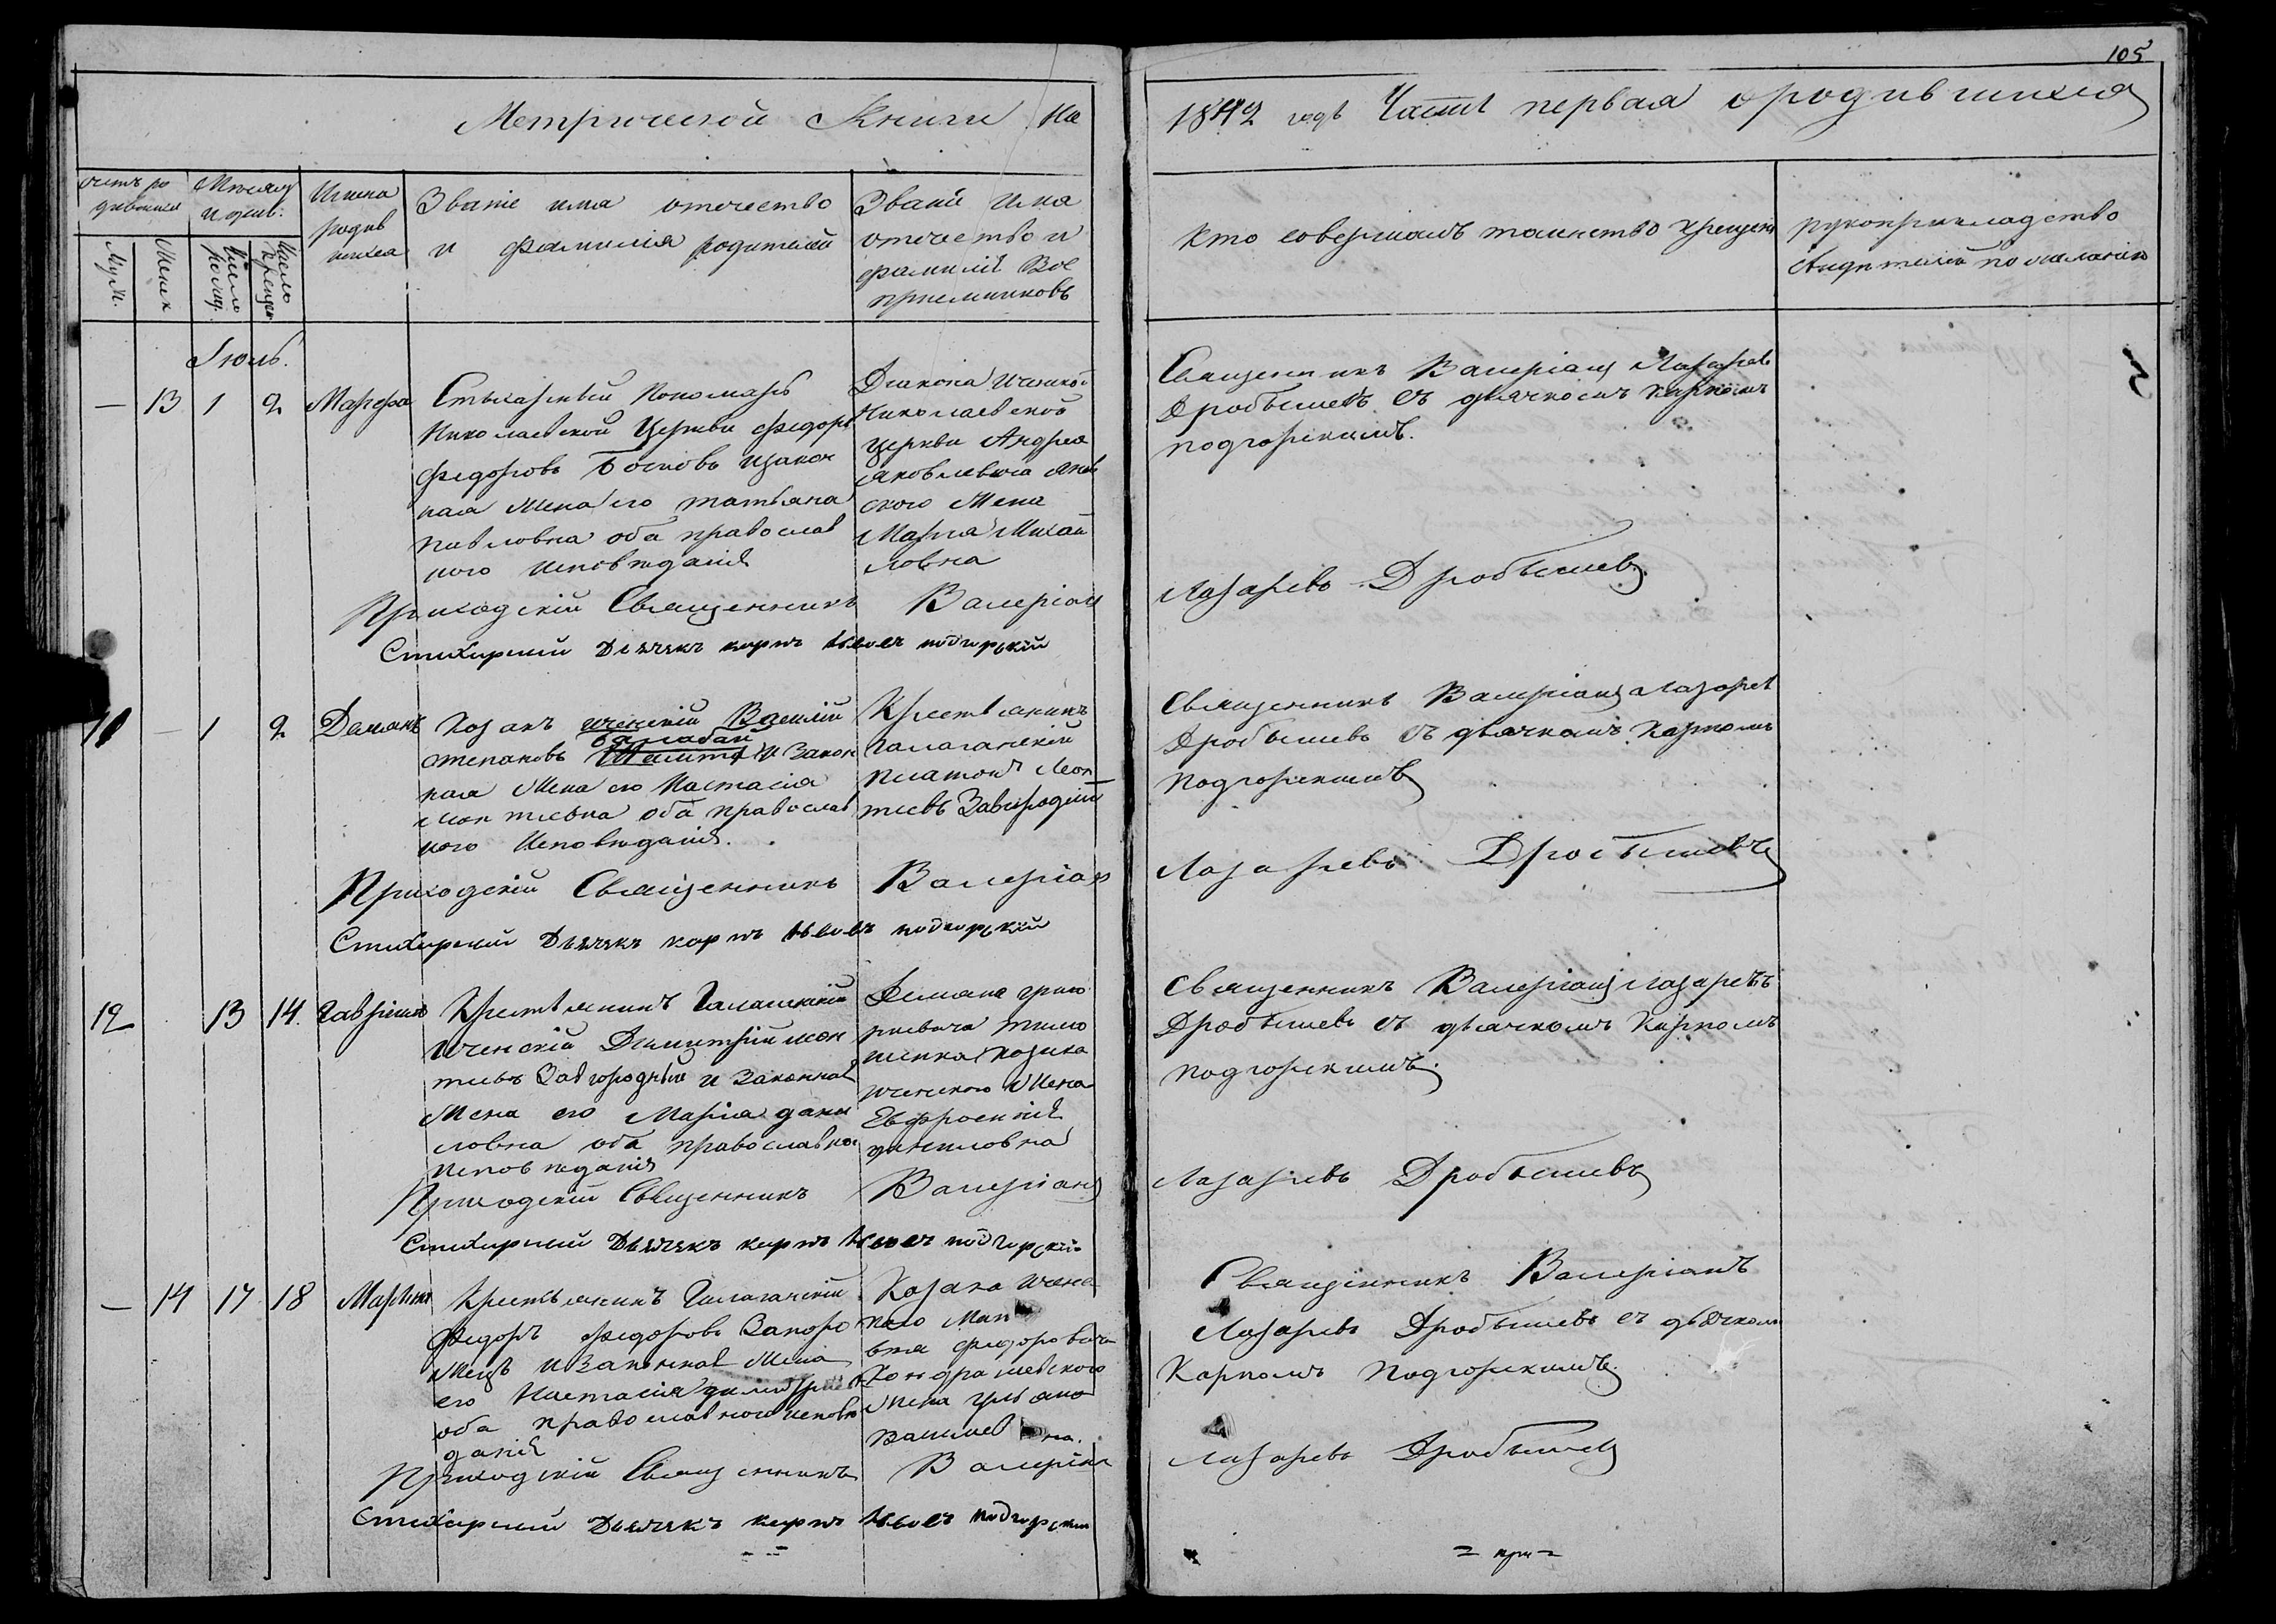 105
Метрической Книги на
1842 годъ Часть первая о родившихся
Счетъ ро
дившихся
Мѣсяцъ
и день.
Имена
родив
шихся
Званіе имя отечество
и фамилія родителей
Званіе Имя
отечество и
фамилія Вос
пріемниковъ
Муж.
Женск
Число
рожд.
Число
крещен
Кто совершалъ таинство крещенія
рукоприкладство
свидѣтелей по желанію
Іюль.
— 13 1 2 Марфа
Стихарный Пономарь
Николаевской Церкви Федоръ
Федоровъ и закон
ная жена его татьяна
павловна оба православ
ного исповѣданія
Діакона Иченской
Николаевской
церкви Андрея
Яковлевича
ского Жена
Марія Михай
ловна
Священникъ Валеріанъ Лазаревъ
Дробышевъ съ дьячкомъ Карпомъ
подгорскимъ.
Приходскій Священникъ Валеріанъ
Лазаревъ Дробышевъ
Стихарный Дьячекъ карпъ подгорскій
11 — 1 2 Даміанъ
Козакъ иченскій Василій
степановъ и Закон
ная Жена его Настасія
Леон тіевна оба православ
ного Исповѣданія.
Крестьянинъ
Галаганскій
платонъ Леон
тіевъ Завгородній
Священникъ Валеріанъ Лазаревъ
Дробышевъ съ дьячкомъ Карпомъ
Подгорскимъ
Приходскій Священникъ Валеріанъ
Лазаревъ Дробышевъ
Стихарный Дьячекъ карпъ подгорскій
12 13 14 Гавріилъ
Крестьянинъ Галаганскій
Иченскій Димитрій леон
тіевъ Завгородный и Законная
Жена его Марія дани
ловна оба православного
исповѣданія
Деміана григо
ріевича тимо
шенка козака
иченского Жена
Евфросинія
даниловна
Священникъ Валеріанъ лазаревъ
Дробышевъ съ дьячкомъ Карпомъ
подгорскимъ.
Приходскій Священникъ Валеріанъ
Лазаревъ Дробышевъ
Стихарный Дьячекъ карпъ подгорскій
— 14 17 18
Крестьянинъ Галаганскій
Федоръ Федоровъ Запоро
жецъ и Законная Жена
его Настасія
оба православного исповѣ
данія
Козака Ичен
кого
Федоровича
Кондрашевского
Жена
Священникъ Валеріанъ
Лазаревъ Дробышевъ съ дьячкомъ
Карпомъ Подгорскимъ.
Приходскій Священникъ Валеріанъ
Лазаревъ Дробышевъ
Стихарный Дьячекъ карпъ подгорскій
= при =